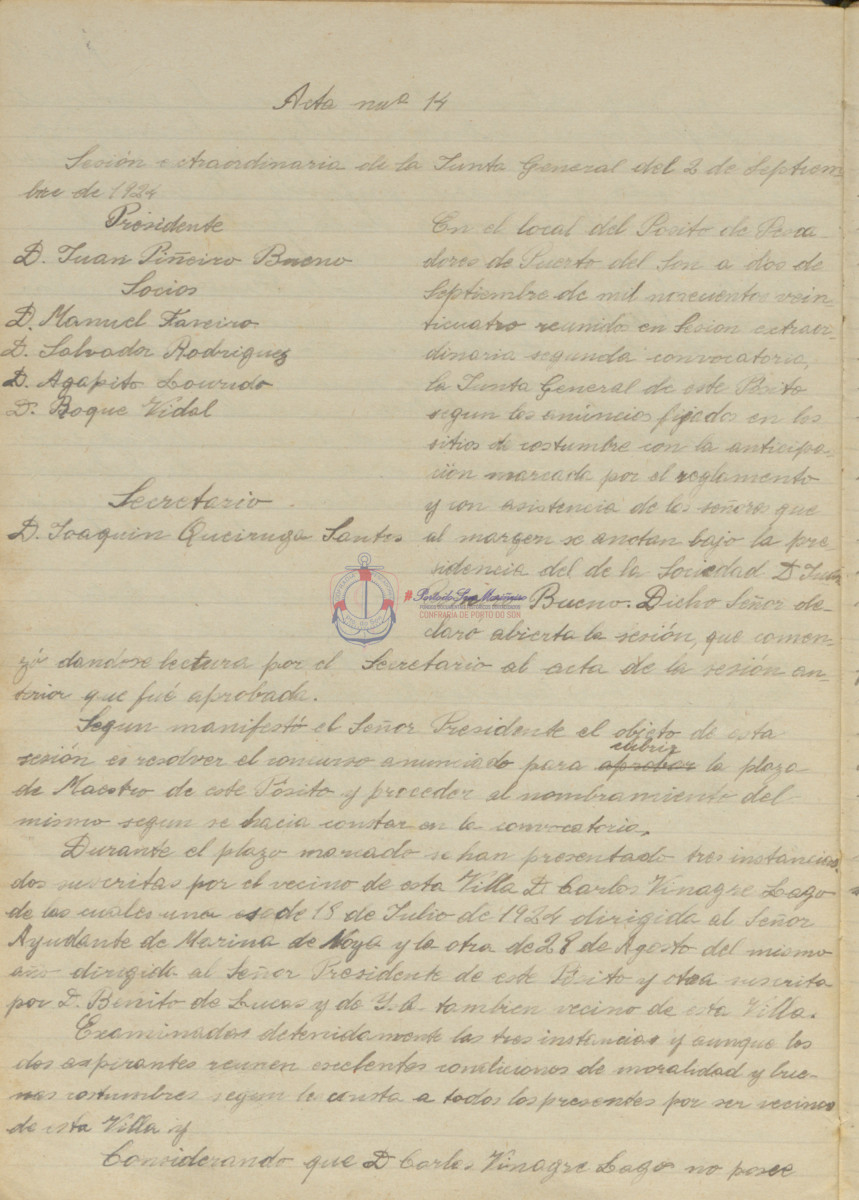 Acta nuº 14
Sesión extraordinaria de la Junta General del 2 de Septiem
bre de 1924
Presidente
D. Juan Piñeiro Bueno
Socios
D. Manuel Faveiro
D. Salvador Rodriguez
D. Agapito Lourido
D. Roque Vidal
Secretario
D. Joaquin Queiruga Santos
En el local del Posito de Pesca-
dores de Puerto del Son a dos de
Septiembre de mil novecuentos vein-
ticuatro reunida en Sesion extraor-
dinaria segunda convocatoria,
la Junta General de este Posito
segun los anuncios fijados en los
sitios de costumbre con la anticipa-
ción marcada por el reglamento
y con asistencia de los señores que
al margen se anotan bajo la pre-
sidencia del de la Sociedad D. Juan
Bueno. Dicho Señor de-
claro abierta la sesión, que comen-
zó dandose lectura por el Secretario al acta de la sesión an-
terior que fué aprobada.
Segun manifestó el Señor Presidente el objeto de esta
sesión es resolver el concurso anunciado para aprobar cubrir la plaza
de Maestro de este Pósito y proceder al nombramiento del
mismo segun se hacia constar en la convocatoria.
Durante el plazo marcado se han presentado tres instancias
dos suscritas por el vecino de esta Villa D. Carlos Vinagre Lago
de las cuales una es de 18 de Julio de 1924 dirigida al Señor
Ayudante de Marina de Noya y la otra de 28 de Agosto del mismo
año dirigida al Señor Presidente de este Pósito y otra suscrita
por D. Benito de Lucas y de Y.A. tambien vecino de esta Villa.
Examinadas detenidamente las tres instancias y aunque los
dos aspirantes reunen excelentes condiciones de moralidad y bue-
nas costumbres segun le consta a todos los presentes por ser vecinos
de esta Villa y
Considerando que D Carlos Vinagre Lago no posee
CONFRARÍA DE PORTO DO SON